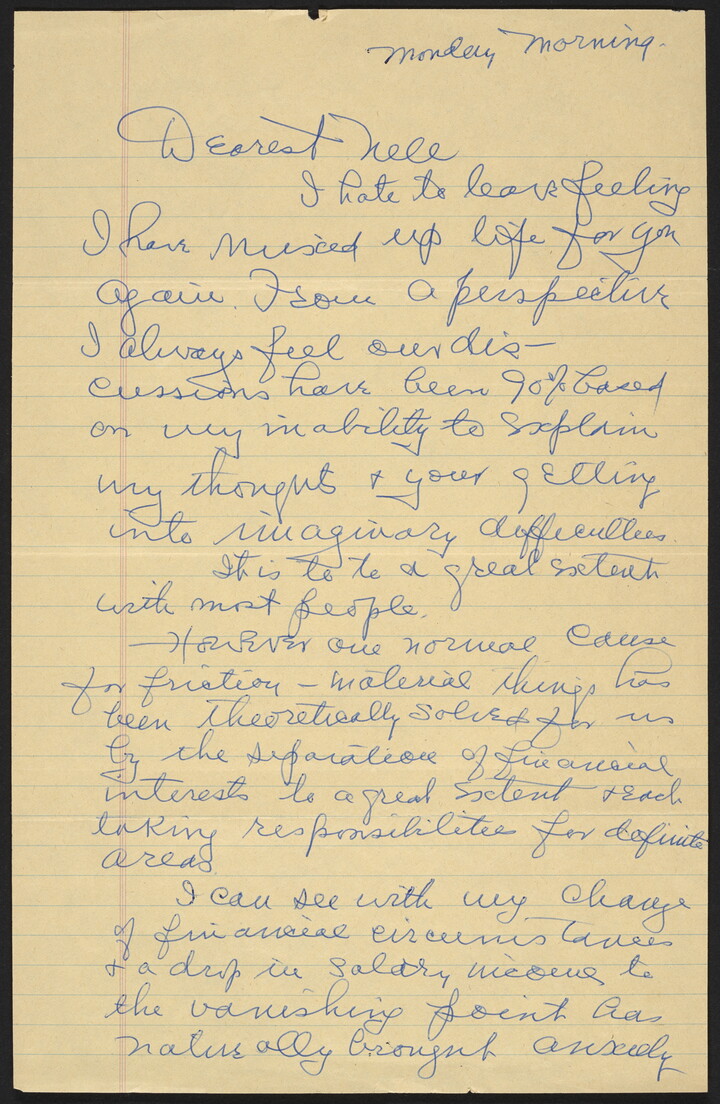 Monday Morning.
Dearest Nell
I hate to leave feeling
I have muxed up life for you
again. From a perspective
I always feel our dis-
cussions have been 90% based
on my inability to explain
my thought & your getting
into imaginary difficulties.
It is to to a great extent
with most people.
- However one normal cause
for friction - material things has
been theoretically solved for us
by the separation of financial
interests to a great extent & each
taking responsibilities for definite
areas.
I can see with my change
of financial circumstances
& a drop in salary income to
the vanishing point has
naturally brought anxiety